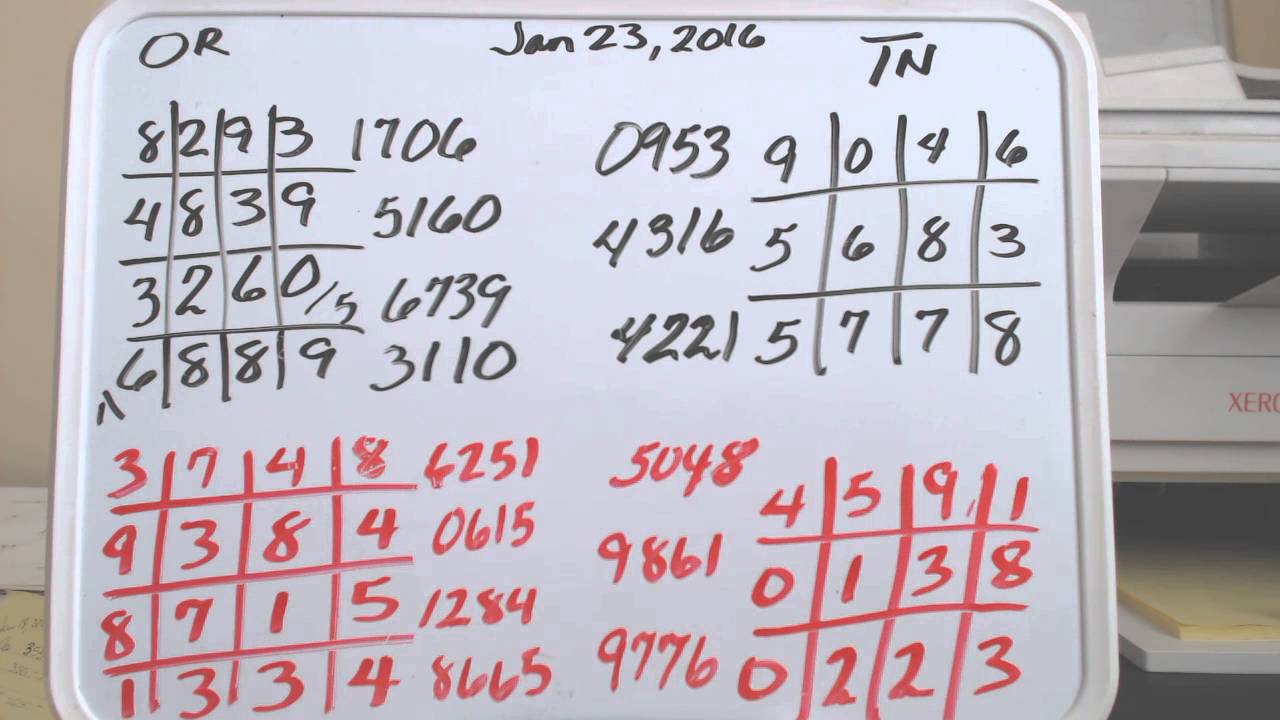 OR Jan 23, 2016 TN
8 2 9 3 1706 0953 9 0 4 6
4 8 3 9 5160 4316 5 6 8 3
3 2 6 0/5 6739 4221 5 7 7 8
6 8 8 9 3110
3 7 4 8 6251 5048 4 5 9 1
9 3 8 4 0615 9861 0 1 3 8
8 7 1 5 1284 9776 0 2 2 3
1 3 3 4 8665
XERO